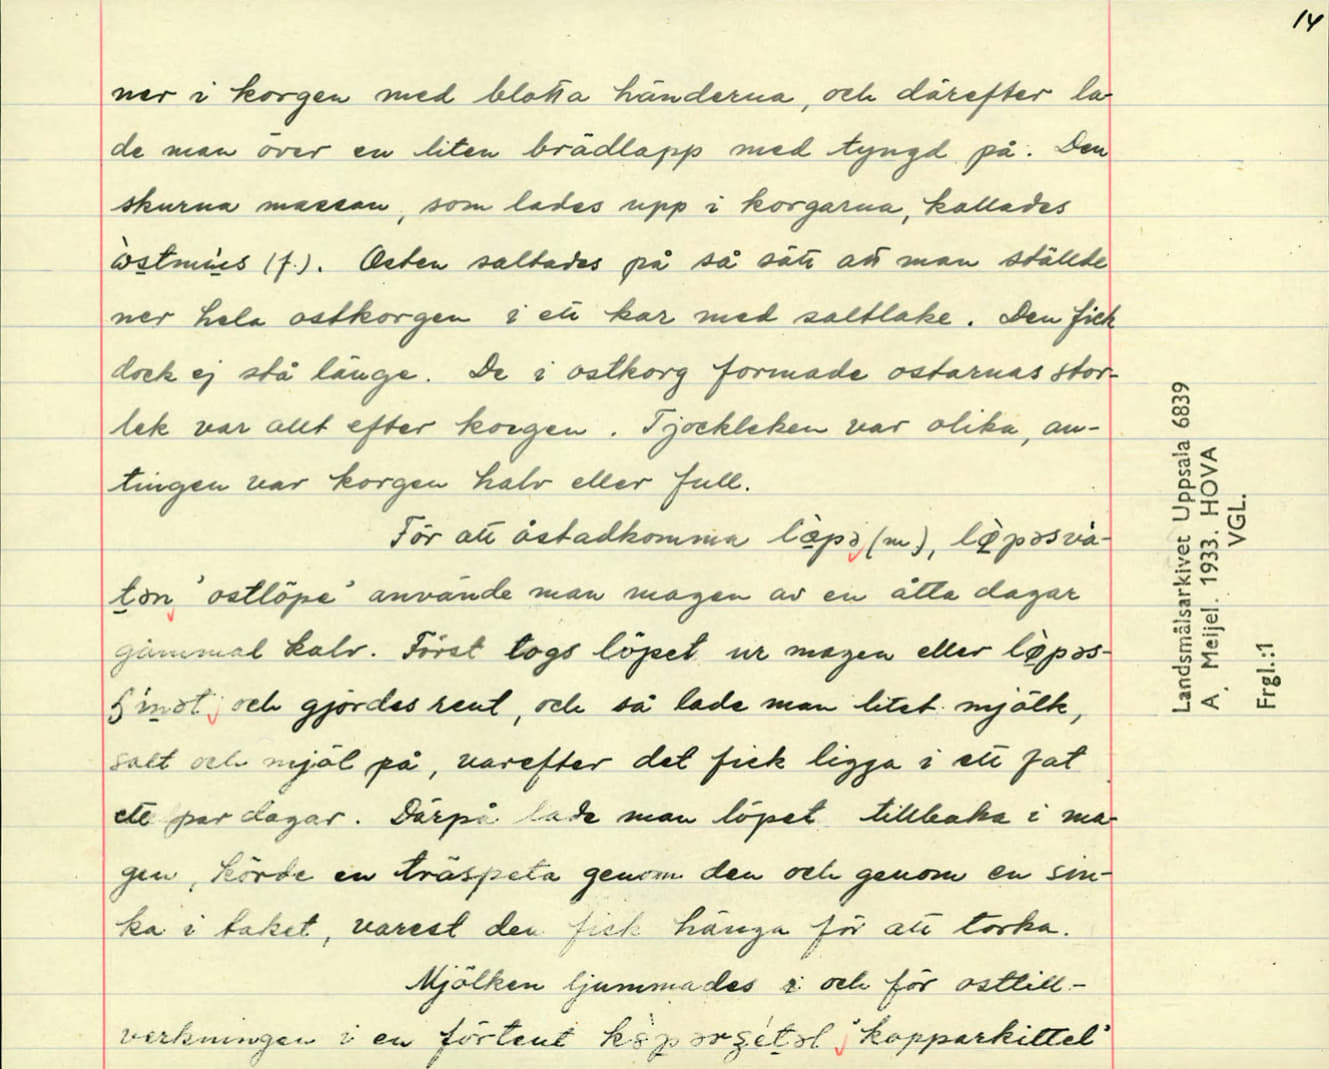 14
ner i korgen med blotta händerna, och därefter la-
de man över en liten brädlapp med tyngd på. Den
skurna massan, som lades upp i korgarna, kallades
(f.). Osten saltades på så sätt att man ställde
ner hela ostkorgen i ett kar med saltlake. Den fick
dock ej stå länge. De i ostkorg formade ostarnas stor-
lek var allt efter korgen. Tjockleken var olika, an-
tingen var korgen halv eller full.
För att åstadkomma lø̀pə (m.), lø̀pəsvà-
tən 'ostlöpe' använde man magen av en åtta dagar
gammal kalv. Först togs löpet ur magen eller lø̀pəs-
och gjordes rent, och så lade man litet mjölk,
salt och mjöl på, varefter det fick ligga i ett fat
ett par dagar. Därpå lade man löpet tillbaka i ma-
gen, körde en träspeta genom den och genom en sin-
ka i taket, varest den fick hänga för att torka.
Mjölken ljummades i och för osttill-
verkningen i en förtent 'kopparkittel'
Landsmålsarkivet Uppsala 6839
A. Meijel. 1933. HOVA
VGL.
Frgl.:1